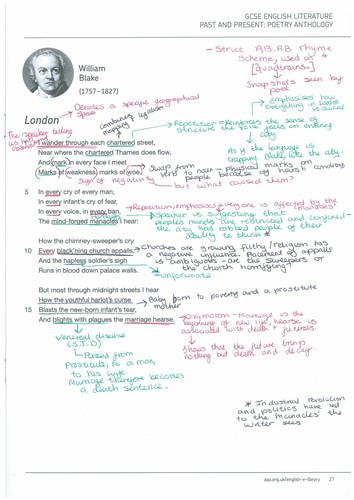 GCSE ENGLISH LITERATURE
PAST AND PRESENT: POETRY ANTHOLOGY
William
Blake
(1757–1827)
- Struct A,B,A,B rhyme
scheme, used in 4
[quadtrains.]
Snapshots seen by
poet
Denotes a specific geographical
space
London
The speaker telling
us
Emphasises how
everything in London
is owned
Repetition = Reinforces the sense of
structure the voice feels on entering
city
As if the language is
trapping them like the city.
I wander through each chartered street,
Near where the chartered Thames does flow,
And mark in every face I meet
Marks of weakness, marks of woe.
Swap from
verb to noun - physical marks on
people because of harsh conditions
but what caused them?
Sign of negativity
5 In every cry of every man,
In every infant's cry of fear,
In every voice, in every ban,
The mind-forged manacles I hear:
Repetition, emphasises everyone is affected by the
'manacles'
Speaker is suggesting that
peoples minds are restricted and confined -
the city has robbed people of their
ability to think *
How the chimney-sweeper's cry
10 Every black'ning church appalls,
And the hapless soldier's sigh
Runs in blood down palace walls.
Churches are growing filthy/religion has
a negative influence. Placement of appalls
is ambiguous - are the sweepers or
the church horrifying?
Unfortunate
But most through midnight streets I hear
How the youthful harlot's curse
15 Blasts the new-born infant's tear,
And blights with plagues the marriage hearse.
Baby born to poverty and a prostitute
mother
Oxymoron - Marriage is the
beginning of new life, hearse is
associated with death + funerals.
Shows that the future brings
nothing but death and decay.
Venereal disease
(S.T.D)
Passed from
Prostitute, to a man,
to his wife.
Marriage therefore becomes
a death sentence.
* Industrial revolution
and politics have led
to the manacles the
writer sees
aqa.org.uk/english-e-library 27